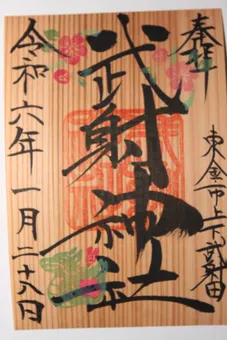 奉拝
東金市上武射田
武射神社
令和六年一月二十八日